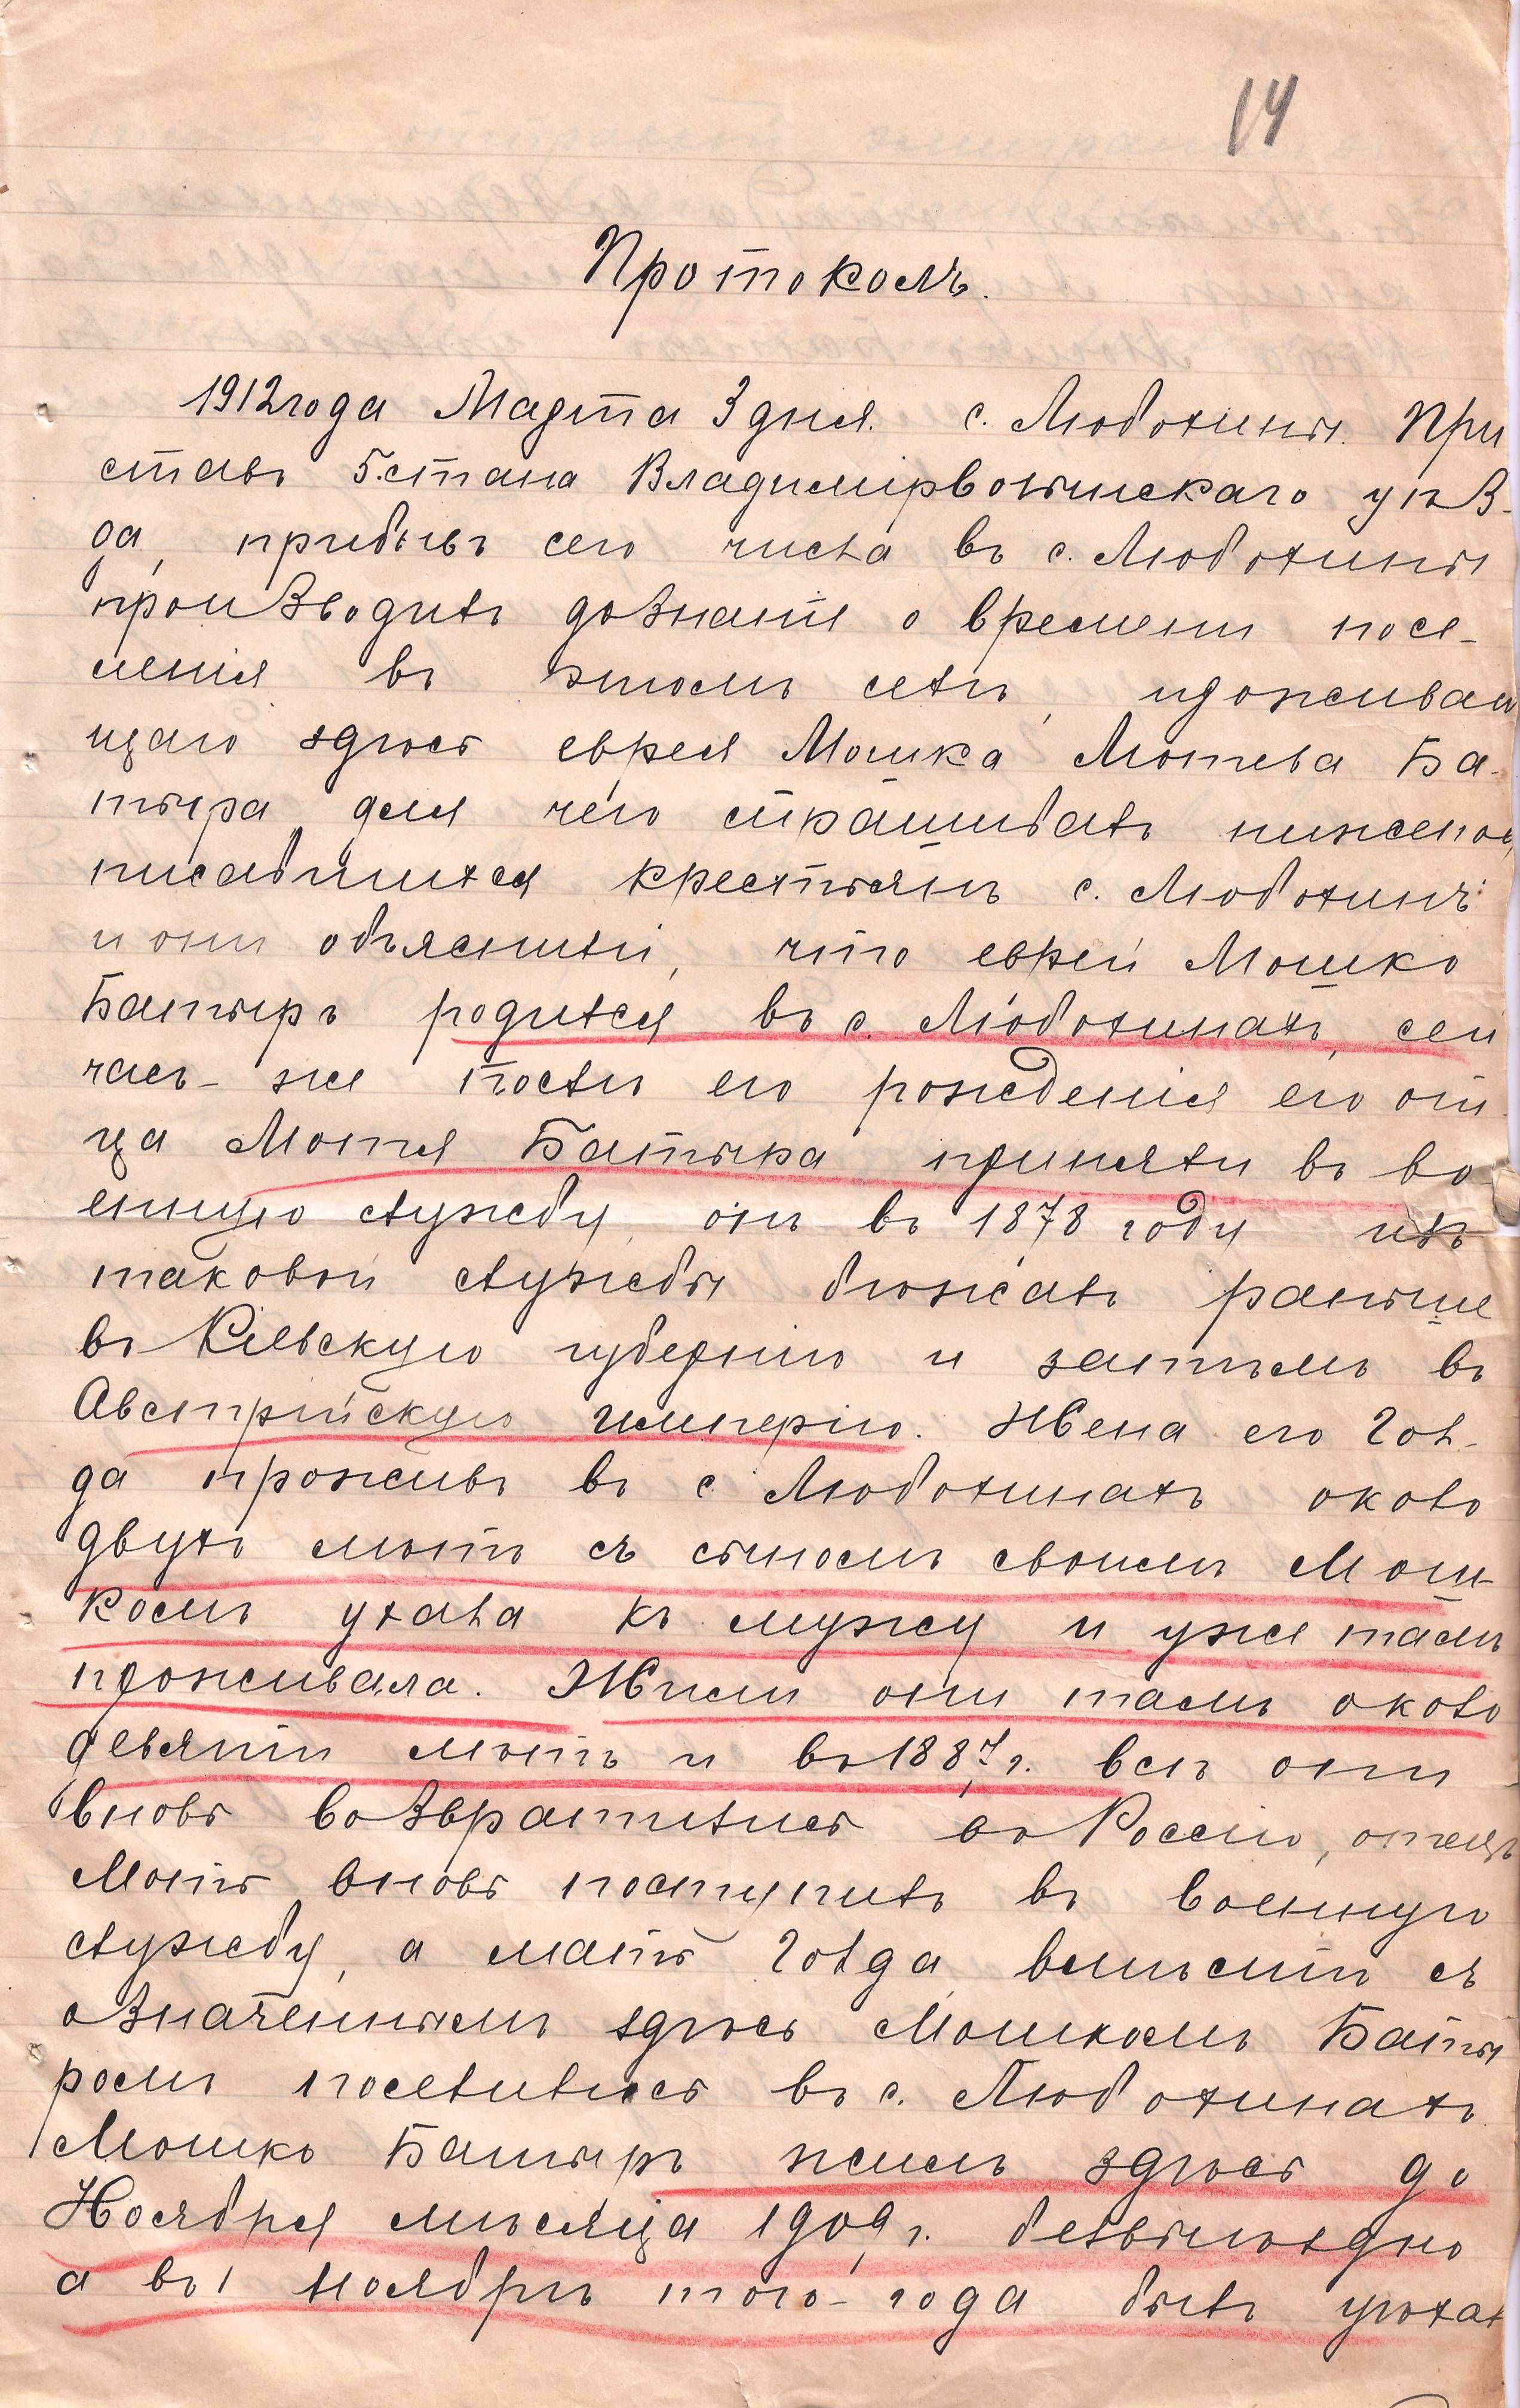 14
Протоколъ.
1912 года Марта 3 дня. с. Любохины. При
ставъ 5. стана Владимірволынскаго уѣз-
да, прибывъ сего числа въ с. Любохины
производилъ дознаніе о времени посе-
ленія въ этомъ селѣ, проживаю
щаго здѣсь еврея Мошка Мотева Ба-
тыра для чего спрашивалъ нижепод
писавшихся крестьянъ с. Любохинъ
и они объяснили, что еврей Мошко
Батыръ родился въ с. Любохинахъ, сей
часъ-же послѣ его рожденія его от
ца Мотя Батыра приняли въ во
енную службу, онъ въ 1878 году изъ
таковой службы бѣжалъ раньше
въ Кіевскую губернію и затѣмъ въ
Австрійскую имперію. Жена его Гол-
да проживъ въ с. Любохинахъ около
двухъ лѣтъ съ сыномъ своимъ Мош-
комъ ухала къ мужу и уже тамъ
проживала. Жили они тамъ около
девяти лѣтъ и въ 1887 г. всѣ они
вновь возвратились въ Россію, отецъ
Моть вновь поступилъ въ военную
службу, а мать Голда вмѣсти съ
означеннымъ здѣсь Мошкомъ Баты
ромъ поселились въ с. Любохинахъ.
Мошко Батыръ жилъ здѣсь до
Ноября мѣсяца 1909 г. безвыѣздно
а въ ноябрѣ того-года былъ уѣхал